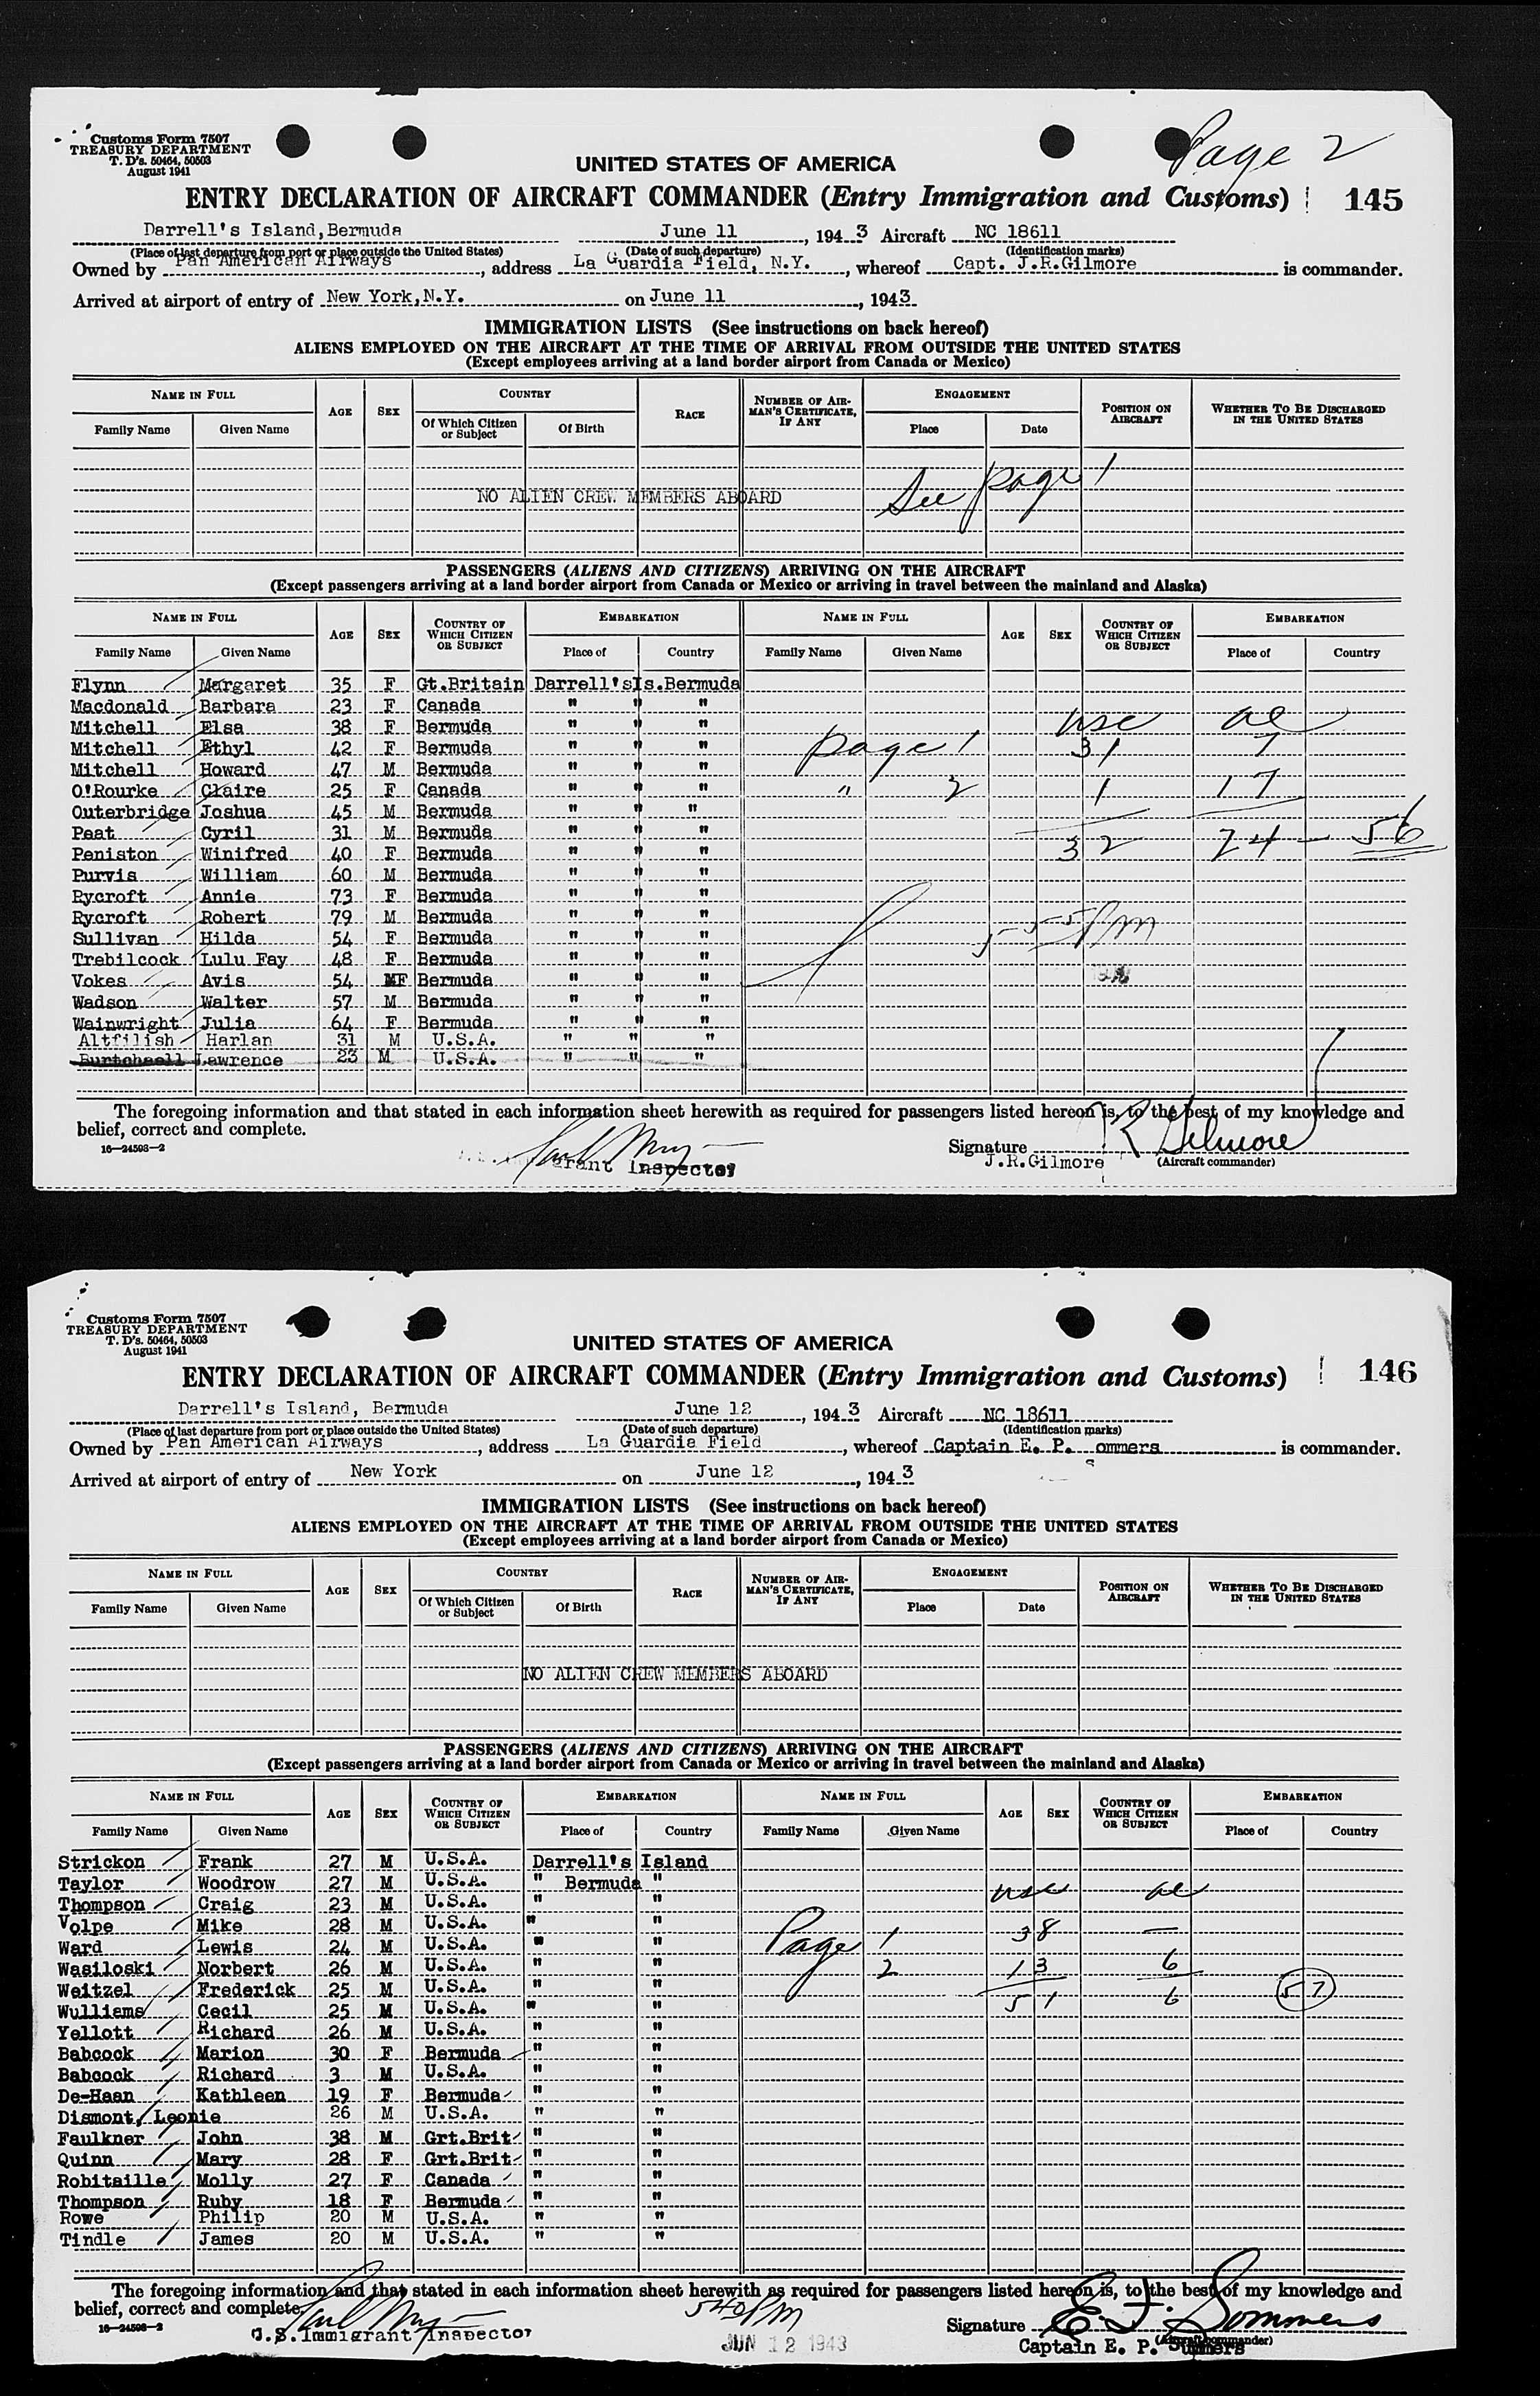 Page 2
Customs Form 7507
TREASURY DEPARTMENT
T. D's. 50464, 50503
August 1941
UNITED STATES OF AMERICA
ENTRY DECLARATION OF AIRCRAFT COMMANDER (Entry Immigration and Customs) 145
Darrell's Island, Bermuda June 11, 1943 Aircraft NC 18611
(Place of last departure from port or place outside the United States) (Date of such departure) (Identification marks)
Owned by Pan American Airways, address La Guardia Field, N.Y., whereof Capt. J.R.Gilmore is commander.
Arrived at airport of entry of New York,N.Y. on June 11, 1943
IMMIGRATION LISTS (See instructions on back hereof)
ALIENS EMPLOYED ON THE AIRCRAFT AT THE TIME OF ARRIVAL FROM OUTSIDE THE UNITED STATES
(Except employees arriving at a land border airport from Canada or Mexico)
NAME IN FULL AGE SEX COUNTRY RACE NUMBER OF AIRMAN'S CERTIFICATE, IF ANY ENGAGEMENT POSITION ON AIRCRAFT WHETHER TO BE DISCHARGED IN THE UNITED STATES
Family Name Given Name Of Which Citizen or Subject Of Birth Place Date
NO ALIEN CREW MEMBERS ABOARD See page 1
PASSENGERS (ALIENS AND CITIZENS) ARRIVING ON THE AIRCRAFT
(Except passengers arriving at a land border airport from Canada or Mexico or arriving in travel between the mainland and Alaska)
NAME IN FULL AGE SEX COUNTRY OF WHICH CITIZEN OR SUBJECT EMBARKATION NAME IN FULL AGE SEX COUNTRY OF WHICH CITIZEN OR SUBJECT EMBARKATION
Family Name Given Name Place of Country Family Name Given Name Place of Country
Flynn Margaret 35 F Gt.Britain Darrell'sIs.Bermuda
Macdonald Barbara 23 F Canada " " "
Mitchell Elsa 38 F Bermuda " " " usc al
Mitchell Ethyl 42 F Bermuda " " " page 1 31 7
Mitchell Howard 47 M Bermuda " " "
O'Rourke Claire 25 F Canada " " " " 2 1 17
Outerbridge Joshua 45 M Bermuda " " "
Peat Cyril 31 M Bermuda " " " 32 24 - 56
Peniston Winifred 40 F Bermuda " " "
Purvis William 60 M Bermuda " " "
Rycroft Annie 73 F Bermuda " " "
Rycroft Robert 79 M Bermuda " " "
Sullivan Hilda 54 F Bermuda " " "
Trebilcock Lulu Fay 48 F Bermuda " " "
Vokes Avis 54 F Bermuda " " "
Wadson Walter 57 M Bermuda " " "
Wainwright Julia 64 F Bermuda " " "
Altfilish Harlan 31 M U.S.A. " " "
Burtchaell Lawrence 23 M U.S.A. " " "
The foregoing information and that stated in each information sheet herewith as required for passengers listed hereon is, to the best of my knowledge and
belief, correct and complete.
16—24598—2
grant Inspector
Signature J R Gilmore
J.R.Gilmore (Aircraft commander)
Customs Form 7507
TREASURY DEPARTMENT
T. D's. 50464, 50503
August 1941
UNITED STATES OF AMERICA
ENTRY DECLARATION OF AIRCRAFT COMMANDER (Entry Immigration and Customs) 146
Darrell's Island, Bermuda June 12, 1943 Aircraft NC 18611
(Place of last departure from port or place outside the United States) (Date of such departure) (Identification marks)
Owned by Pan American Airways, address La Guardia Field, whereof Captain E. P. Sommers is commander.
Arrived at airport of entry of New York on June 12, 1943
IMMIGRATION LISTS (See instructions on back hereof)
ALIENS EMPLOYED ON THE AIRCRAFT AT THE TIME OF ARRIVAL FROM OUTSIDE THE UNITED STATES
(Except employees arriving at a land border airport from Canada or Mexico)
NAME IN FULL AGE SEX COUNTRY RACE NUMBER OF AIRMAN'S CERTIFICATE, IF ANY ENGAGEMENT POSITION ON AIRCRAFT WHETHER TO BE DISCHARGED IN THE UNITED STATES
Family Name Given Name Of Which Citizen or Subject Of Birth Place Date
NO ALIEN CREW MEMBERS ABOARD
PASSENGERS (ALIENS AND CITIZENS) ARRIVING ON THE AIRCRAFT
(Except passengers arriving at a land border airport from Canada or Mexico or arriving in travel between the mainland and Alaska)
NAME IN FULL AGE SEX COUNTRY OF WHICH CITIZEN OR SUBJECT EMBARKATION NAME IN FULL AGE SEX COUNTRY OF WHICH CITIZEN OR SUBJECT EMBARKATION
Family Name Given Name Place of Country Family Name Given Name Place of Country
Strickon Frank 27 M U.S.A. Darrell's Island
Taylor Woodrow 27 M U.S.A. " Bermuda "
Thompson Craig 23 M U.S.A. " " usc al
Volpe Mike 28 M U.S.A. " "
Ward Lewis 24 M U.S.A. " " Page 1 38 —
Wasiloski Norbert 26 M U.S.A. " " 2 13 6
Weitzel Frederick 25 M U.S.A. " " 51 6 57
Wulliams Cecil 25 M U.S.A. " "
Yellott Richard 26 M U.S.A. " "
Babcock Marion 30 F Bermuda " "
Babcock Richard 3 M U.S.A. " "
De-Haan Kathleen 19 F Bermuda " "
Dismont, Leonie 26 M U.S.A. " "
Faulkner John 38 M Grt.Brit " "
Quinn Mary 28 F Grt.Brit " "
Robitaille Molly 27 F Canada " "
Thompson Ruby 18 F Bermuda " "
Rowe Philip 20 M U.S.A. " "
Tindle James 20 M U.S.A. " "
The foregoing information and that stated in each information sheet herewith as required for passengers listed hereon is, to the best of my knowledge and
belief, correct and complete.
16—24598—2
U.S. Immigrant Inspector
540 PM
JUN 12 1943
Signature E. P. Sommers
(Aircraft commander)
Captain E. P. Sommers